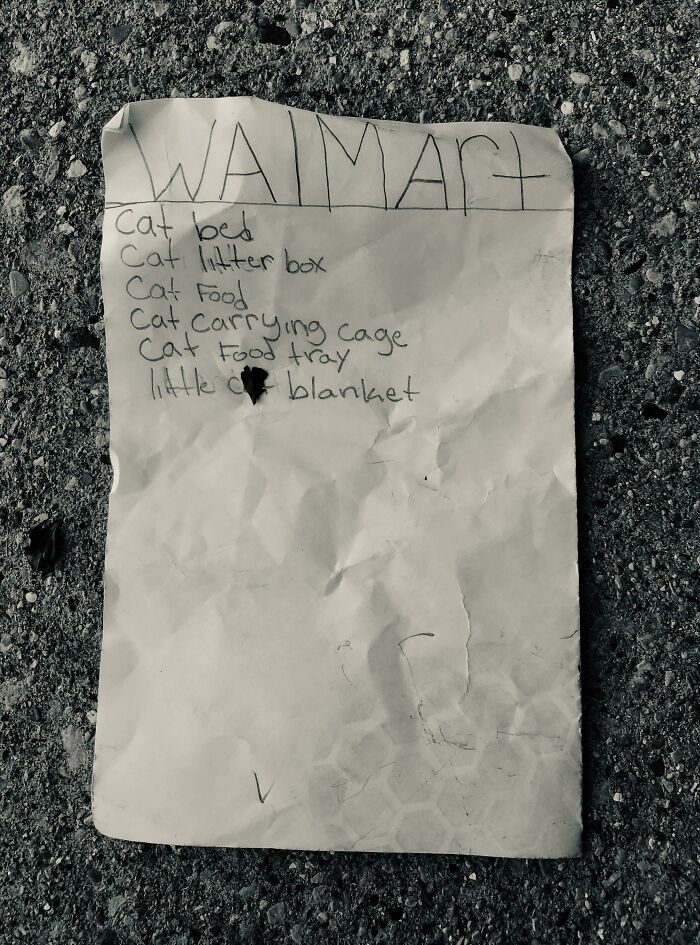 WAlMArt
Cat bed
Cat litter box
Cat Food
Cat carrying cage
Cat Food tray
little blanket